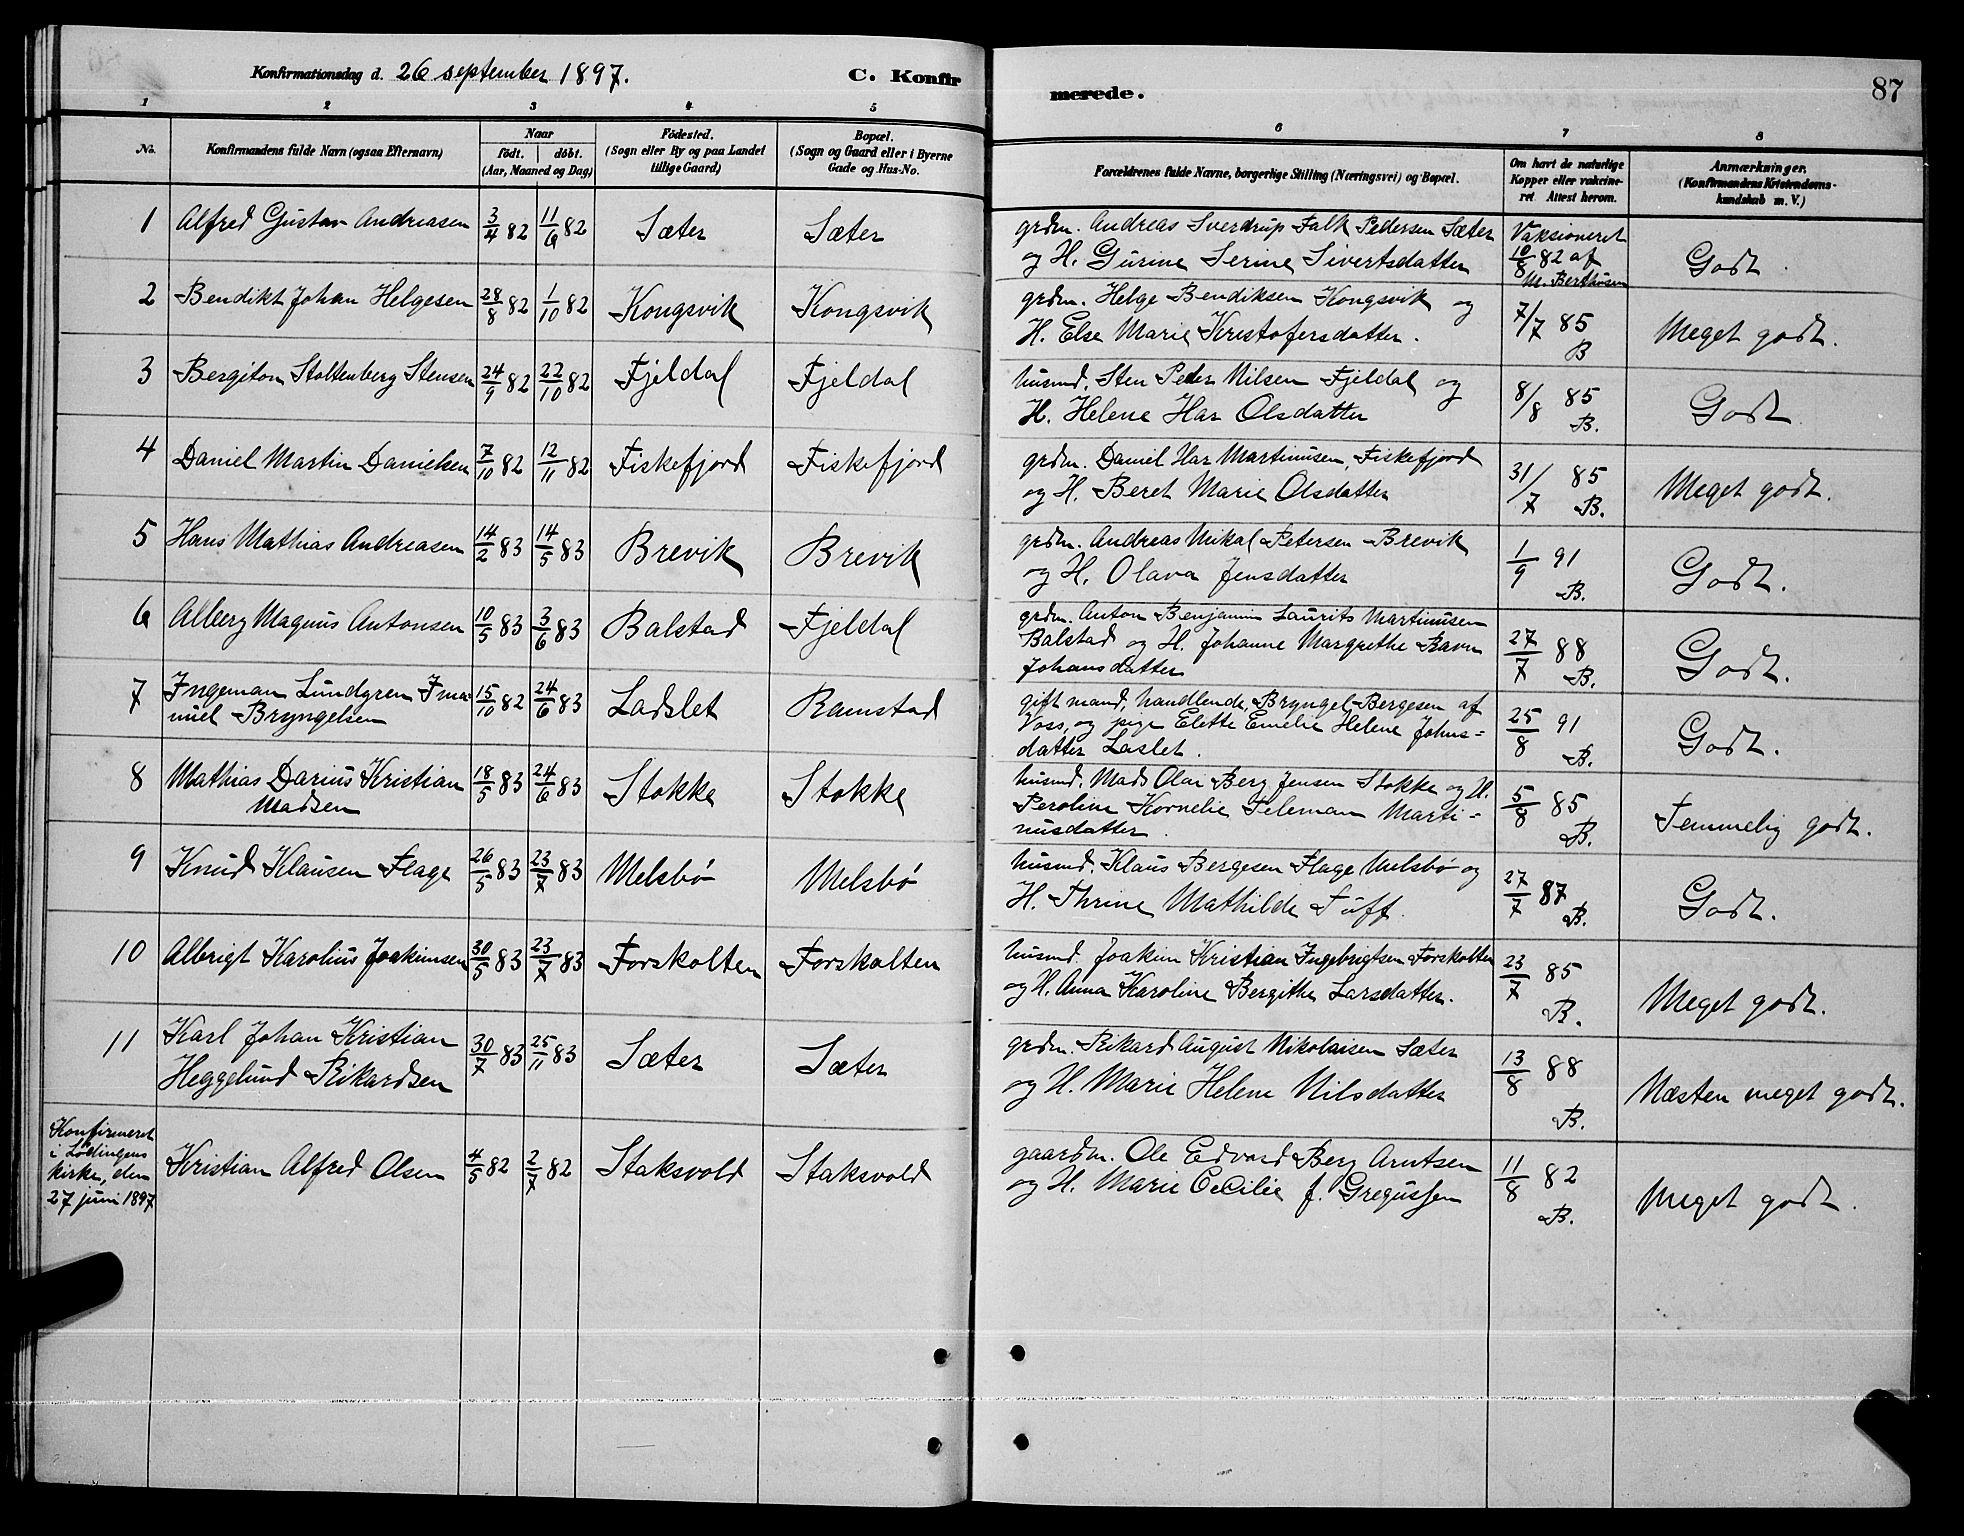 Konfirmationsdag d. 26 september 1897.
C. Konfirmerede.
87
1 2 3 4 5 6 7 8
No.
Konfirmandens fulde Navn (ogsaa Efternavn)
Naar
födt. döbt.
(Aar, Maaned og Dag)
Födested.
(Sogn eller By og paa Landet
tillige Gaard)
Bopæl.
(Sogn og Gaard eller i Byerne
Gade og Hus-No.
Forældrenes fulde Navne, borgerlige Stilling (Næringsvei) og Bopæl.
Om havt de naturlige
Kopper eller vakcine-
ret. Attest herom.
Anmærkninger.
(Konfirmandens Kristendoms-
kundskab m. V.)
1 Alfred Gustav Andreasen 3/4 82 11/6 82 Sæter Sæter
grdm. Andreas Sverdrup Falk Pedersen Sæter
og H. Gurine Serine Sivertsdatter
Vaksioneret
10/8 82 af
M. Berthusen
Godt.
2 Bendikt Johan Helgesen 28/8 82 1/10 82 Kongsvik Kongsvik
grdm. Helge Bendiksen Kongsvik og
H. Else Marie Kristofersdatter.
7/7 85
B
Meget godt.
3 Bergiton Stoltenberg Stensen 24/9 82 22/10 82 Fjeldal Fjeldal
husmd. Sten Peder Nilsen Fjeldal og
H. Helene Har Olsdatter
8/8 85
B.
Godt.
4 Daniel Martin Danielsen 7/10 82 12/11 82 Fiskefjord Fiskefjord
grdm. Daniel Har Martinusen, Fiskefjord
og H. Beret Marie Olsdatter
31/7 85
B.
Meget godt.
5 Hans Mathias Andreasen 14/2 83 14/5 83 Brevik Brevik
grdm. Andreas Mikal Petersen Brevik
og H. Olava Jensdatter
1/9 91
B.
Godt.
6 Alberg Magnus Antonsen 10/5 83 3/6 83 Balstad Fjeldal
grdm. Anton Benjamin Laurits Martinusen
Balstad og H. Johanne Margrethe Ravn
Johansdatter
27/7 88
B.
Godt.
7 Ingeman Lundgren Ima-
nuel Bryngelsen 15/10 82 24/6 83 Ladslet Ramstad
gift mand, handlende, Bryngel Bergesen af
Voss, og pige Elette Emelie Helene Johns=
datter Laslet.
25/8 91
B.
Godt.
8 Mathias Darius Kristian
Madsen 18/5 83 24/6 83 Stokke Stokke
husmd. Mads Olai Berg Jensen Stokke og H.
Peroline Kornelie Teleman Marti=
nusdatter.
5/8 85
B.
Temmelig godt.
9 Knud Klausen Flage 26/5 83 23/7 83 Melsbö Melsbö
husmd. Klaus Bergesen Flage Melsbö og
H. Thrine Mathilde Tuff.
27/7 87
B.
Godt.
10 Albrigt Karolius Joakimsen 30/5 83 23/7 83 Forskolten Forskolten
husmd. Joakim Kristian Ingebrigtsen Forskolten
og H. Anna Karoline Bergithe Larsdatter.
23/7 85
B.
Meget godt.
11 Karl Johan Kristian
Heggelund Rikardsen 30/7 83 25/11 83 Sæter Sæter
grdm. Rikard August Nikolaisen Sæter
og H. Marie Helene Nilsdatter
13/8 88
B.
Næsten meget godt.
Konfirmeret
i Lödingens
kirke, den
27 juni 1897
Kristian Alfred Olsen 4/5 82 2/7 82 Staksvold Staksvold
gaardm. Ole Edvard Berg Arntsen
og H. Marie Cecilie f. Gregussen
11/8 82
B.
Meget godt.